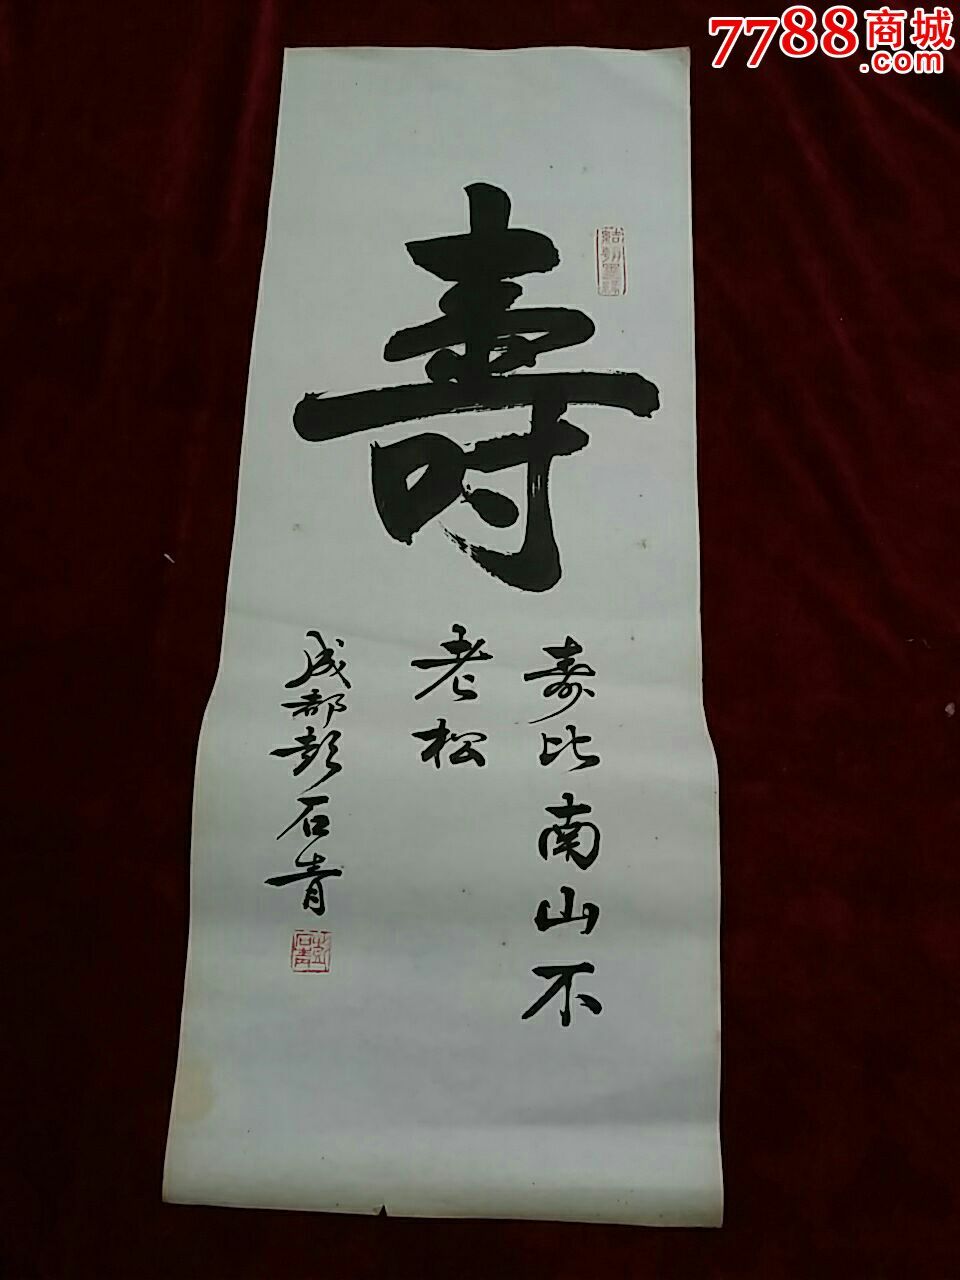 7788商城
.com
壽
壽比南山不
老松
成都彭石青
彭石青